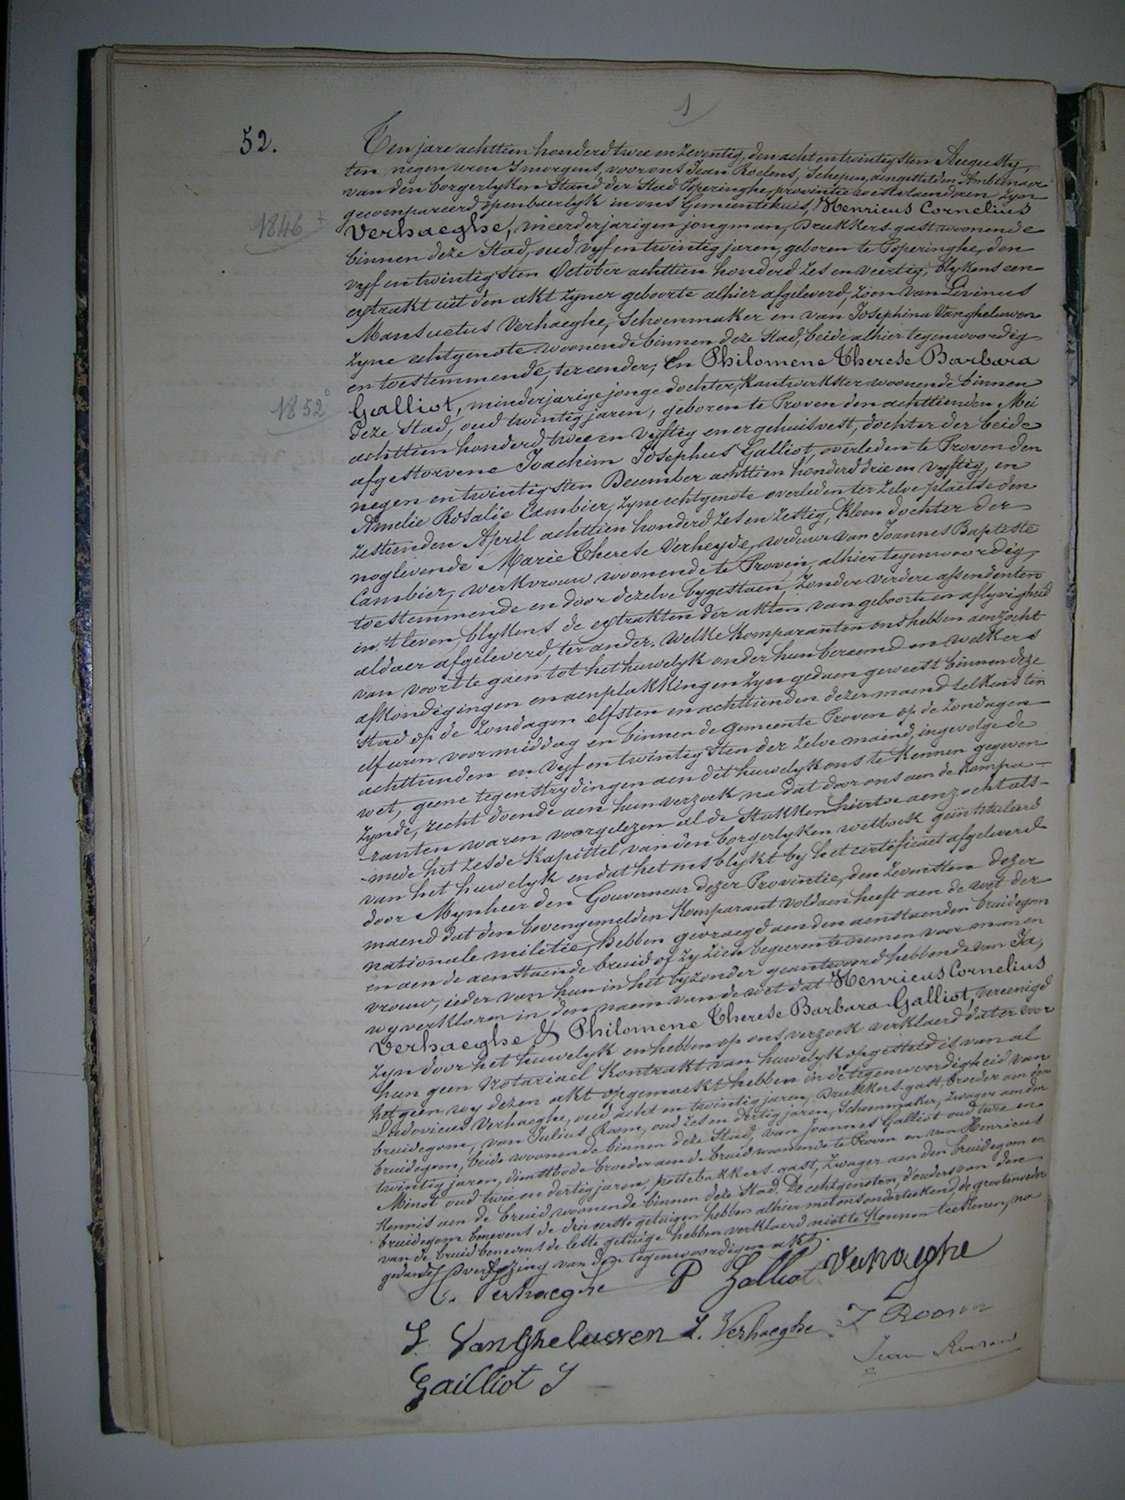 1
52.
Ten jare achttien honderd twee en zeventig, den acht en twintigsten Augusty,
ten negen uren 's morgens, voor ons Jean Roelens, Schepen, aengestelden Ambtenaer
van den borgerlyken Stand der Stad Poperinghe, provintie westvlaenderen, zyn
gecompareerd openbaerlyk in ons Gemeentehuis, Henricus Cornelius
1846
Verhaeghe, meerderjarigen jongman, Drukkers-gast woonende
binnen deze Stad, oud vyf en twintig jaren, geboren te Poperinghe, den
vyf en twintigsten October achttien honderd zes en veertig, blykens een
extrakt uit den akt zyner geboorte alhier afgeleverd, zoon van Livinus
Mansuetus Verhaeghe, Schoenmaker en van Josephina Vanghelüwen
zyne echtgenote woonende binnen deze Stad, beide alhier tegenwoordig
en toestemmende, ter eender; En Philomene Therese Barbara
1852
Galliot, minderjarige jonge dochter, Kantwerkster woonende binnen
deze Stad, oud twintig jaren, geboren te Proven den achttienden Mei
achttien honderd twee en vyftig en er gehuisvest, dochter der beide
afgestorvene Joachim Josephus Galliot, overleden te Proven den
negen en twintigsten December achttien honderd drie en vyftig, en
Amelie Rosalie Cambier, zyne echtgenote overleden ter zelve plaetse den
zestienden April achttien honderd zes en zestig, Kleen dochter der
noglevende Marie Therese Verheyde, weduwe van Joannes Baptiste
Cambier, werkvrouw woonende te Proven, alhier tegenwoordig,
toestemmende en door dezelve bygestaen, zonder verdere assendenten
in 't leven, blykens de extrakten der akten van geboorte en aflyvigheid
aldaer afgeleverd, ter ander. Welke Komparanten ons hebben aenzocht
van voort te gaen tot het huwelyk onder hun beraemd en welkers
afkondigingen en aenplakkingen zyn gedaen geweest binnen deze
Stad op de Zondagen elfsten en achttienden dezer maend telkens ten
elf uren voormiddag en binnen de Gemeente Proven op de Zondagen
achttienden en vyf en twintigsten der zelve maend, ingevolge de
wet, geene tegenstrydingen aen dit huwelyk ons te Kennen gegeven
zynde, recht doende aen hun verzoek na dat door ons aen de Kompa-
ranten waren voorgelezen al de Stukken hiertoe aenzocht als-
mede het zesde Kapittel van den borgerlyken wetboek geïntituleerd
van het huwelyk en dat het ons blykt by het certificaet afgeleverd
door Mynheer den Gouverneur dezer Provintie, den zevensten dezer
maend dat den bovengemelden Komparant voldaen heeft aen de wet der
nationale militie, Hebben gevraegd aen den aenstaenden bruidegom
en aen de aenstaende bruid of zy zich begeeren te nemen voor man en
vrouw, ieder van hun in het byzonder geantwoord hebbende van Ja,
wy verklaren in den naem van de wet dat Henricus Cornelius
Verhaeghe & Philomene Therese Barbara Galliot, vereenigd
zyn door het huwelyk en hebben op ons verzoek verklaerd dat er voor
hun geen Notariael Kontrakt van huwelyk opgesteld is van al
het geen wy dezen akt opgemaekt hebben in de tegenwoordigheid van
Ludovicus Verhaeghe, oud acht en twintig jaren, Drukkers-gast, broeder aen den
bruidegom, van Julius Room, oud zes en dertig jaren, Schoenmaker, zwager aen den
bruidegom, beide woonende binnen deze Stad, van Joannes Galliot oud twee en
twintig jaren, dienstbode broeder aen de bruid woonende te Proven en van Henricus
Minot oud twee en dertig jaren, pottebakkers-gast, zwager aen den bruidegom en
Kennis aen de bruid woonende binnen deze Stad. De echtgenoten, d'ouders van den
bruidegom benevens de drie eerste getuigen hebben alhier met ons onderteekend, de grootmoeder
van de bruid benevens de leste getuige hebben verklaerd niet te Konnen teekenen, na
gedane voorlezing van den tegenwoordigen akt.
C. Verhaeghe P Galliot Verhaeghe
J. Vanghelüwen L. Verhaeghe J Room
Gailliot J